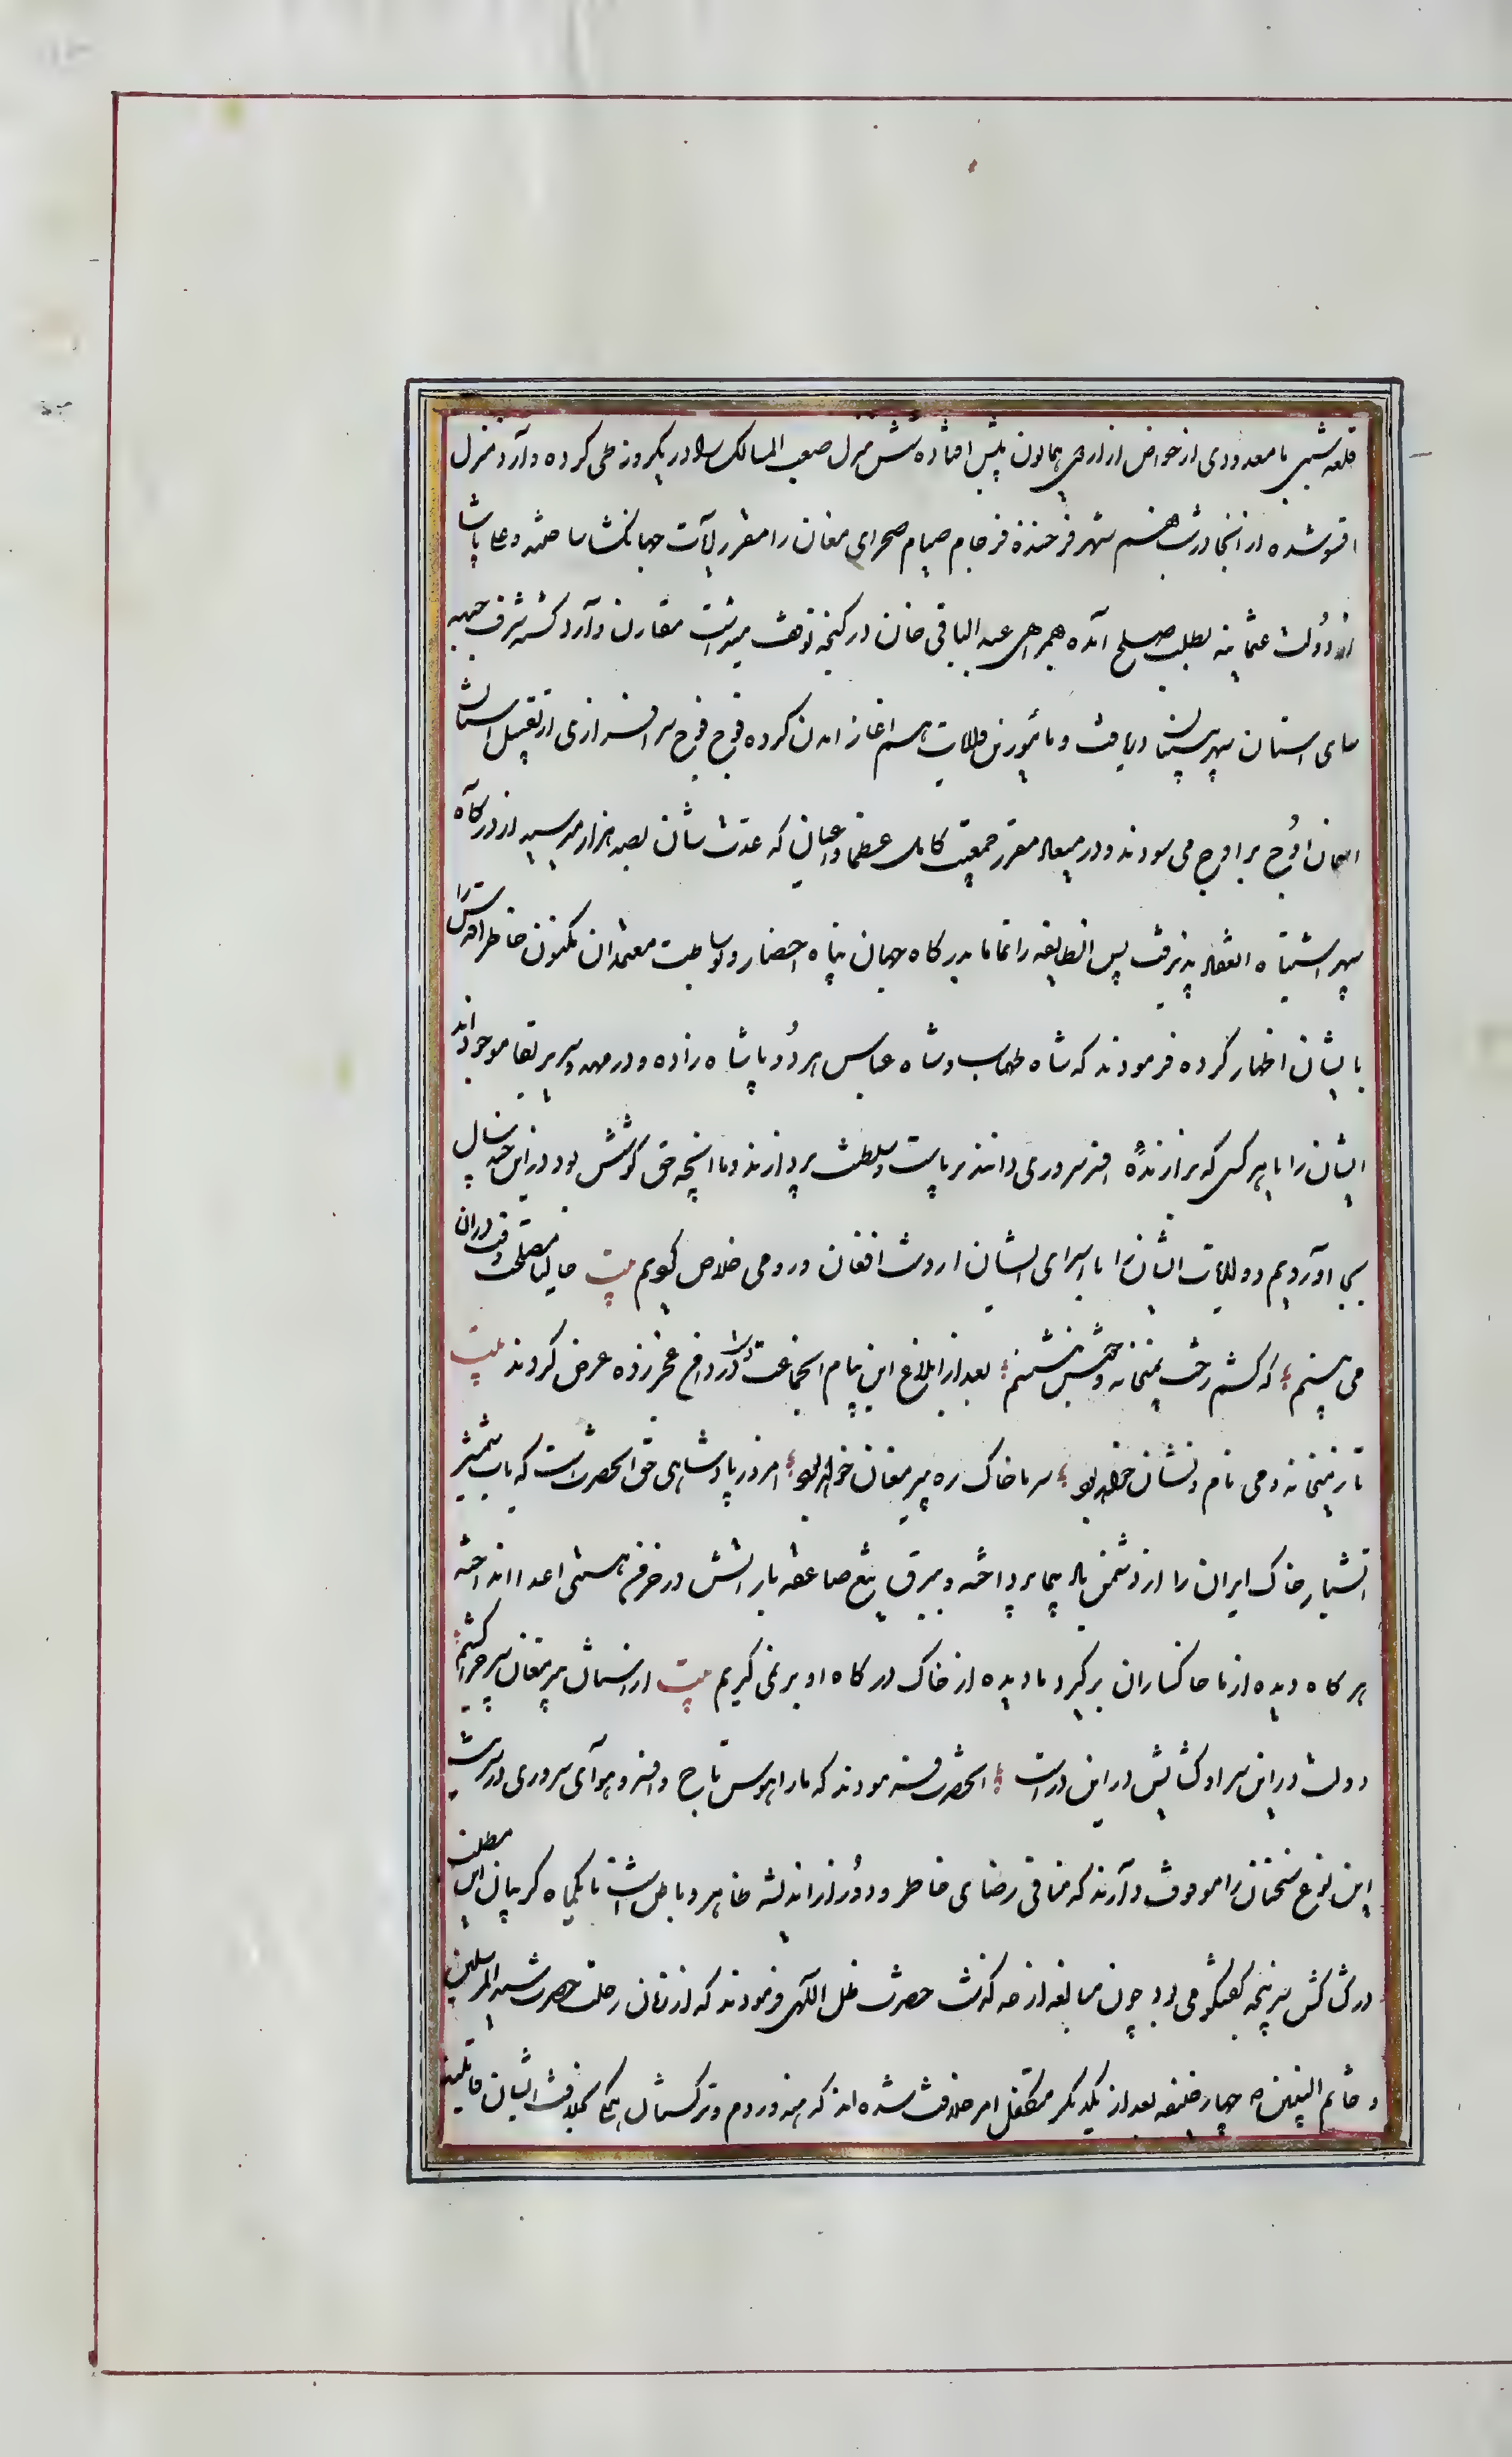 قلعه شبی با معدودی از خواص از اردوی همایون پیش افتاده شش منزل صعب المسالک را در یکروز طی کرده وارد منزل
اقسو شده از انجا در شب هشتم شهر فرخنده فرجام صیام صحرای مغان را مقر رایات جهانکشا ساخته و علی پاشا
از دولت عثمانیه بطلب صلح آمده همراهی عبد الباقی خان در کنجه توقف میداشت مقارن وارد کشته شرف جبهه
سای استان سپهر بنیان دریافت و مأمورین ولایات هم اغاز امدن کرده فوج فوج سر افرازی از تقبیل استان
اسمان اوج بر اوج می سودند و در میعاد مقرر جمعیت کامل عظما و اعیان که عدت شان بصد هزار میرسید از درکاه
سپهر اشتباه انعقاد پذیرفت پس انطایفه را تماما بدرکاه جهان پناه احضار و بوساطت معتمدان مکنون خاطر اقدس را
بایشان اظهار کرده فرمودند که شاه طهماسب و شاه عباس هر دو پادشاه زاده و در مهد و سریر بقا موجود اند
ایشان را یا هر کس که برازندهٔ افسر سروری دانند بریاست و سلطنت بردارند و ما انچه حق کوشش بود در این چند سال
بجا آوردیم و ولایات ایشان را با اسرای ایشان از دست افغان و رومی خلاص کردیم بیت حالیا مصلحت وقت دران
می بینم که کشم رخت بمیخانه و خوش بنشینم بعد از ابلاغ این پیام انجماعت از در عجز زده عرض کردند بیت
تا ز میخانه و می نام و نشان خواهد بود سر ما خاک ره پیر مغان خواهد بود امروز پادشاهی حق انحضرت است که باب شمشیر
اتشبار خاک ایران را از دشمن باد پیما پرداخته و ببرق تیغ صاعقه بار اتش در خرمن هستی اعدا انداخته
هر کاه دیده از ما خاکساران برکیرد ما دیده از خاک درکاه او بر نمی کیریم بیت از استان پیر مغان سر چرا کشیم
دولت در این سرا و کشایش در این درست انحضرت فرمودند که ما را هوس تاج و افسر و هوای سروری در سر نیست
این نوع سخنان را موقوف دارند که منافی رضای خاطر و دور از اندیشه ظاهر و باطن است تا یکماه کریبان این مطلب
در کشاکش سر پنجه کفتکو می بود چون مبالغه از حد کذشت حضرت ظل اللهی فرمودند که از زمان رحلت حضرت سید المرسلین
و خاتم النبیین چهار خلیفه بعد از یکدیکر متکفل امر خلافت شده اند که هند و روم و ترکستان همکی بخلافت ایشان قایلند